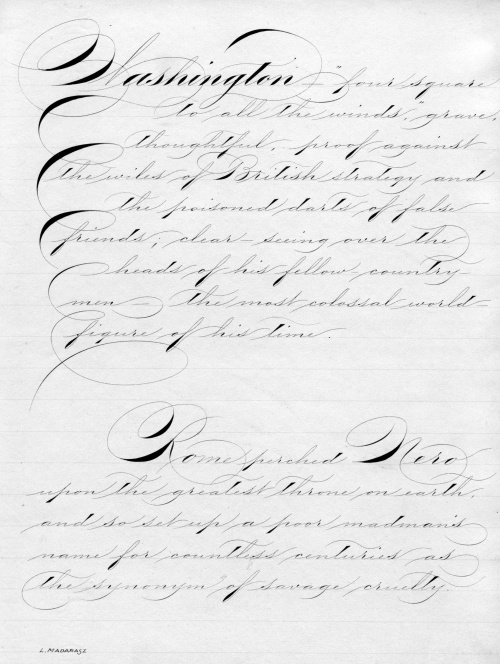 Washington — "four square
to all the winds," grave,
thoughtful, – proof against
the wiles of British strategy and
the poisoned darts of false
friends; clear-seeing over the
heads of his fellow-country-
men — the most colossal world-
figure of his time.
Rome perched Nero
upon the greatest throne on earth,
and so set up a poor madman's
name for countless centuries as
the synonym of savage cruelty.
L. MADARASZ